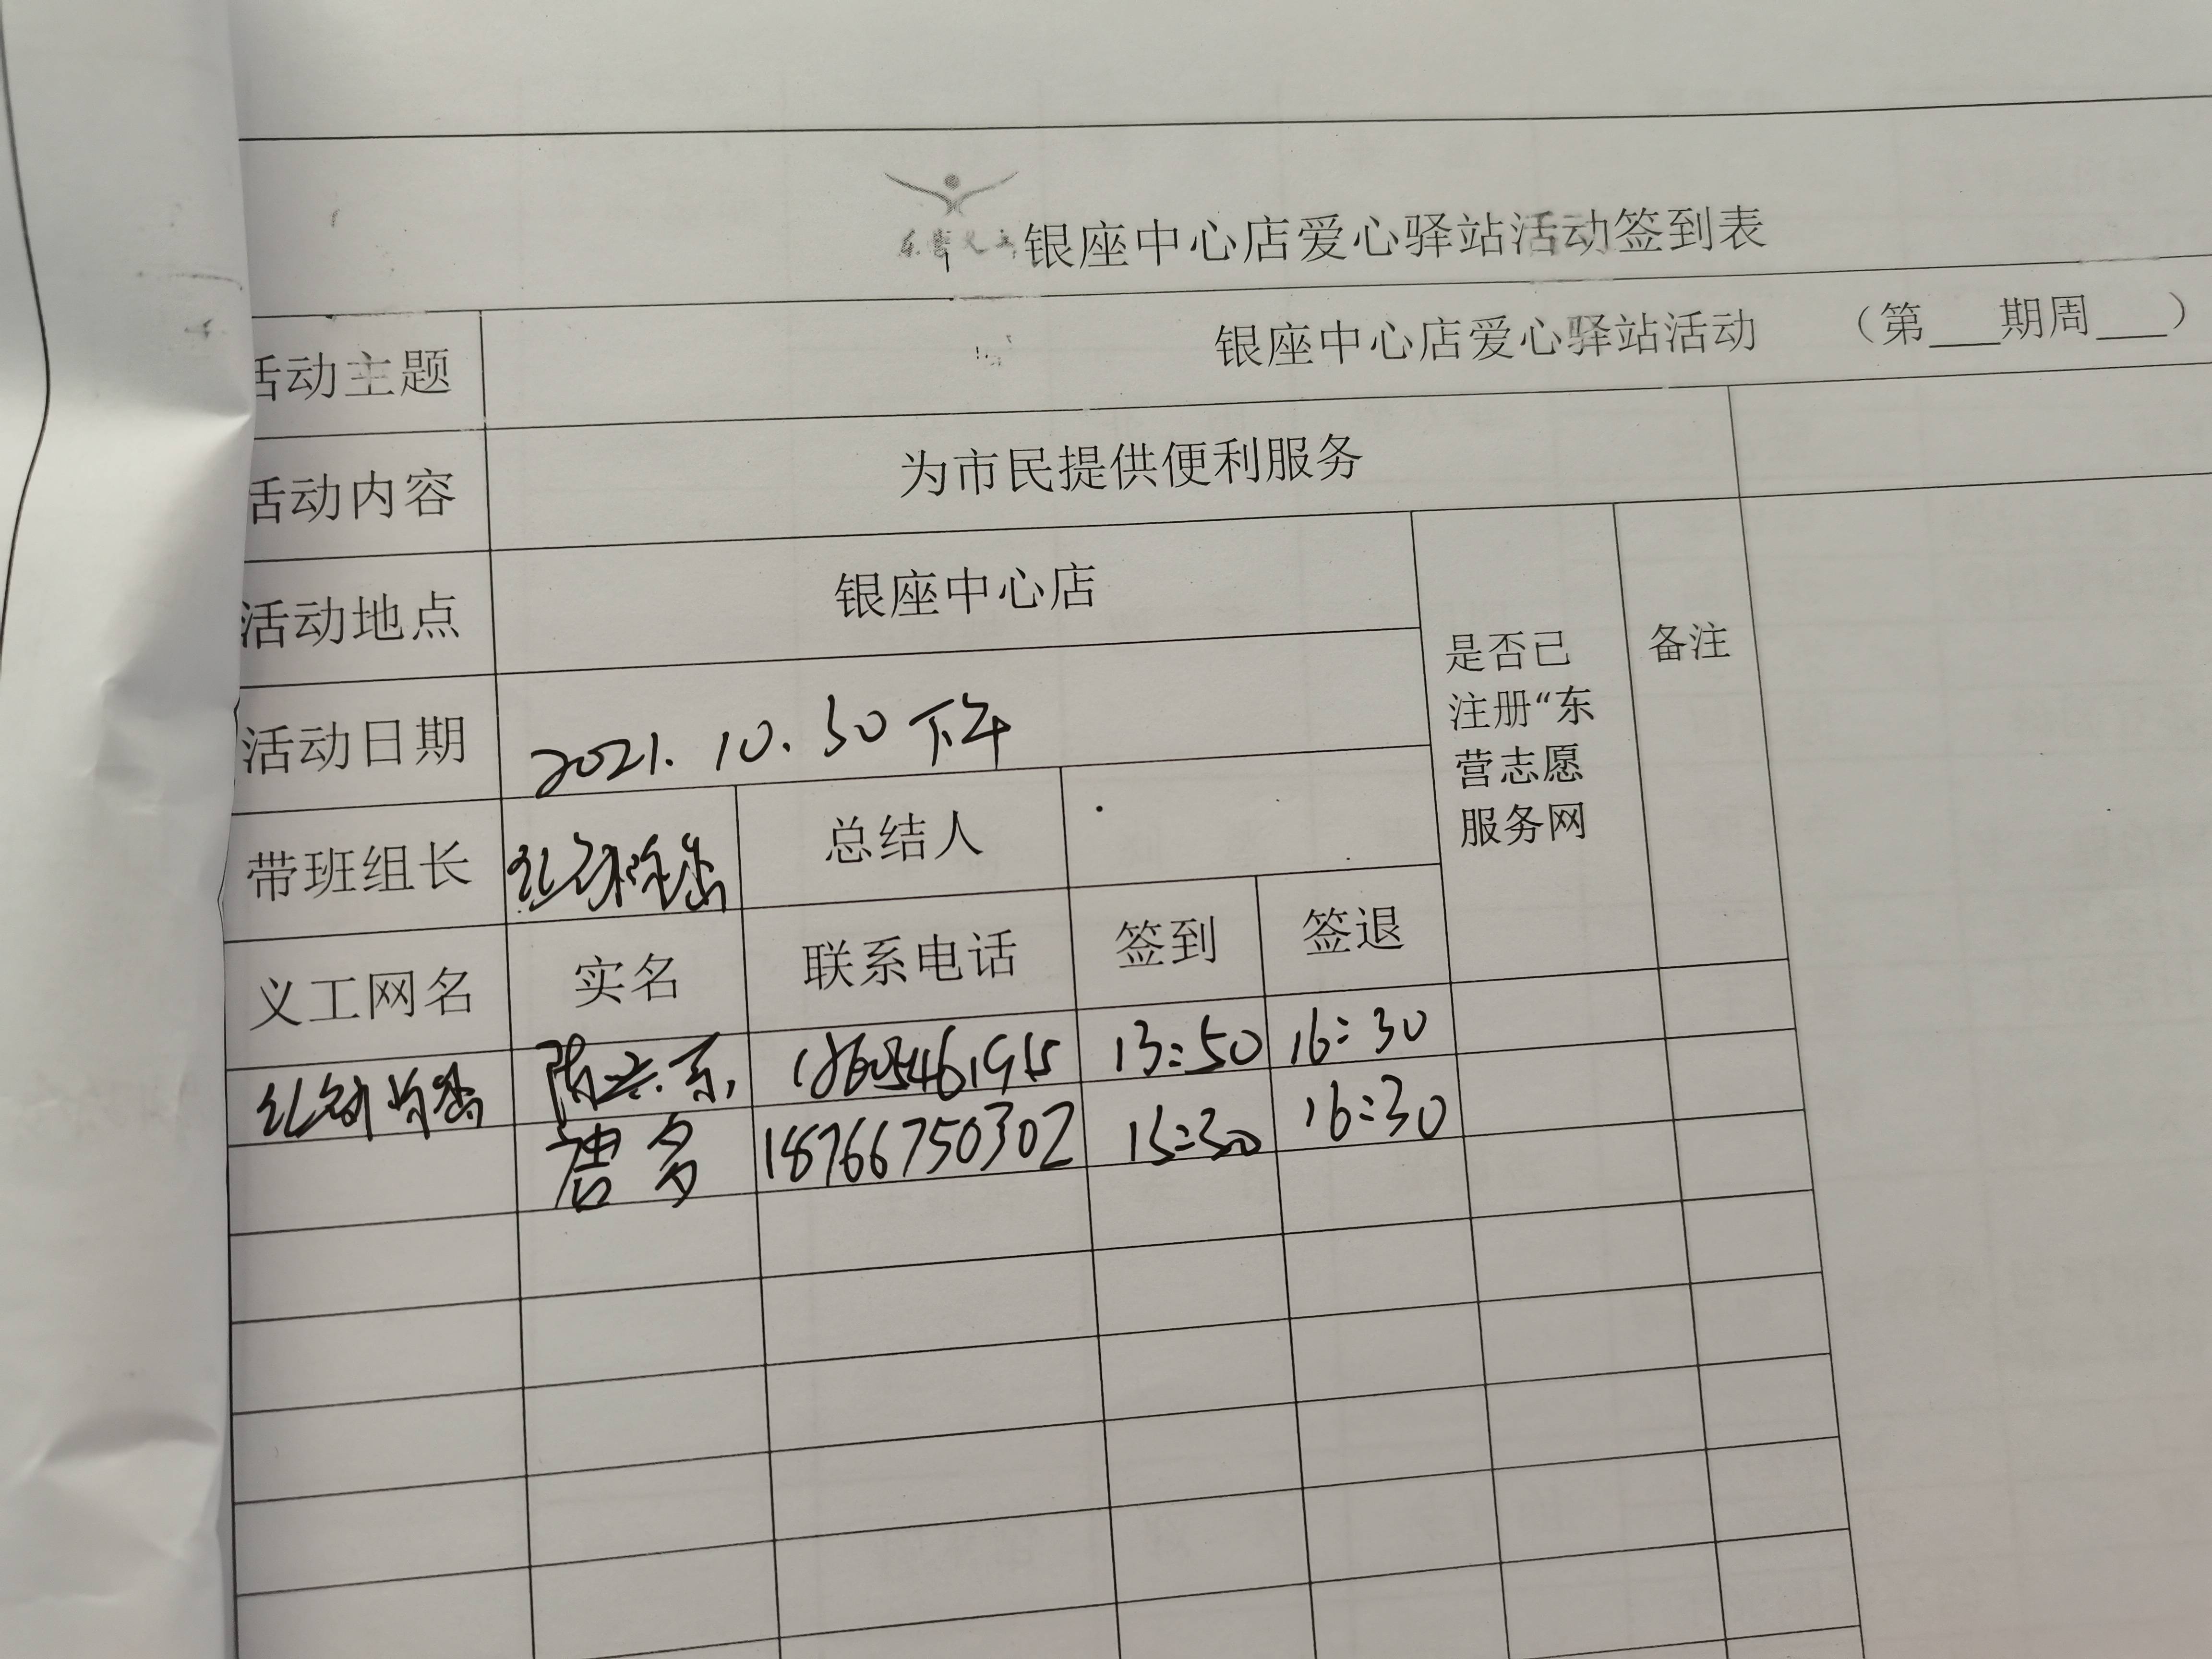 东营义工
银座中心店爱心驿站活动签到表
活动主题 银座中心店爱心驿站活动 （第___期周___）
活动内容 为市民提供便利服务
活动地点 银座中心店
是否已
注册“东
营志愿
服务网
备注
活动日期 2021.10.30下午
带班组长 总结人
义工网名 实名 联系电话 签到 签退
13:50 16:30
唐多 18766750302 16:30